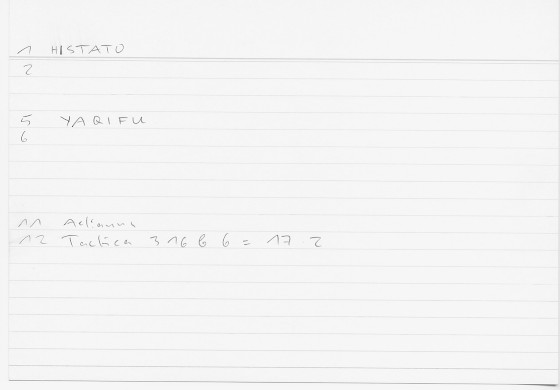 1 HISTATO
2
5 YAQIFU
6
11
12 Tactica 3 16 6 6 = 17 2